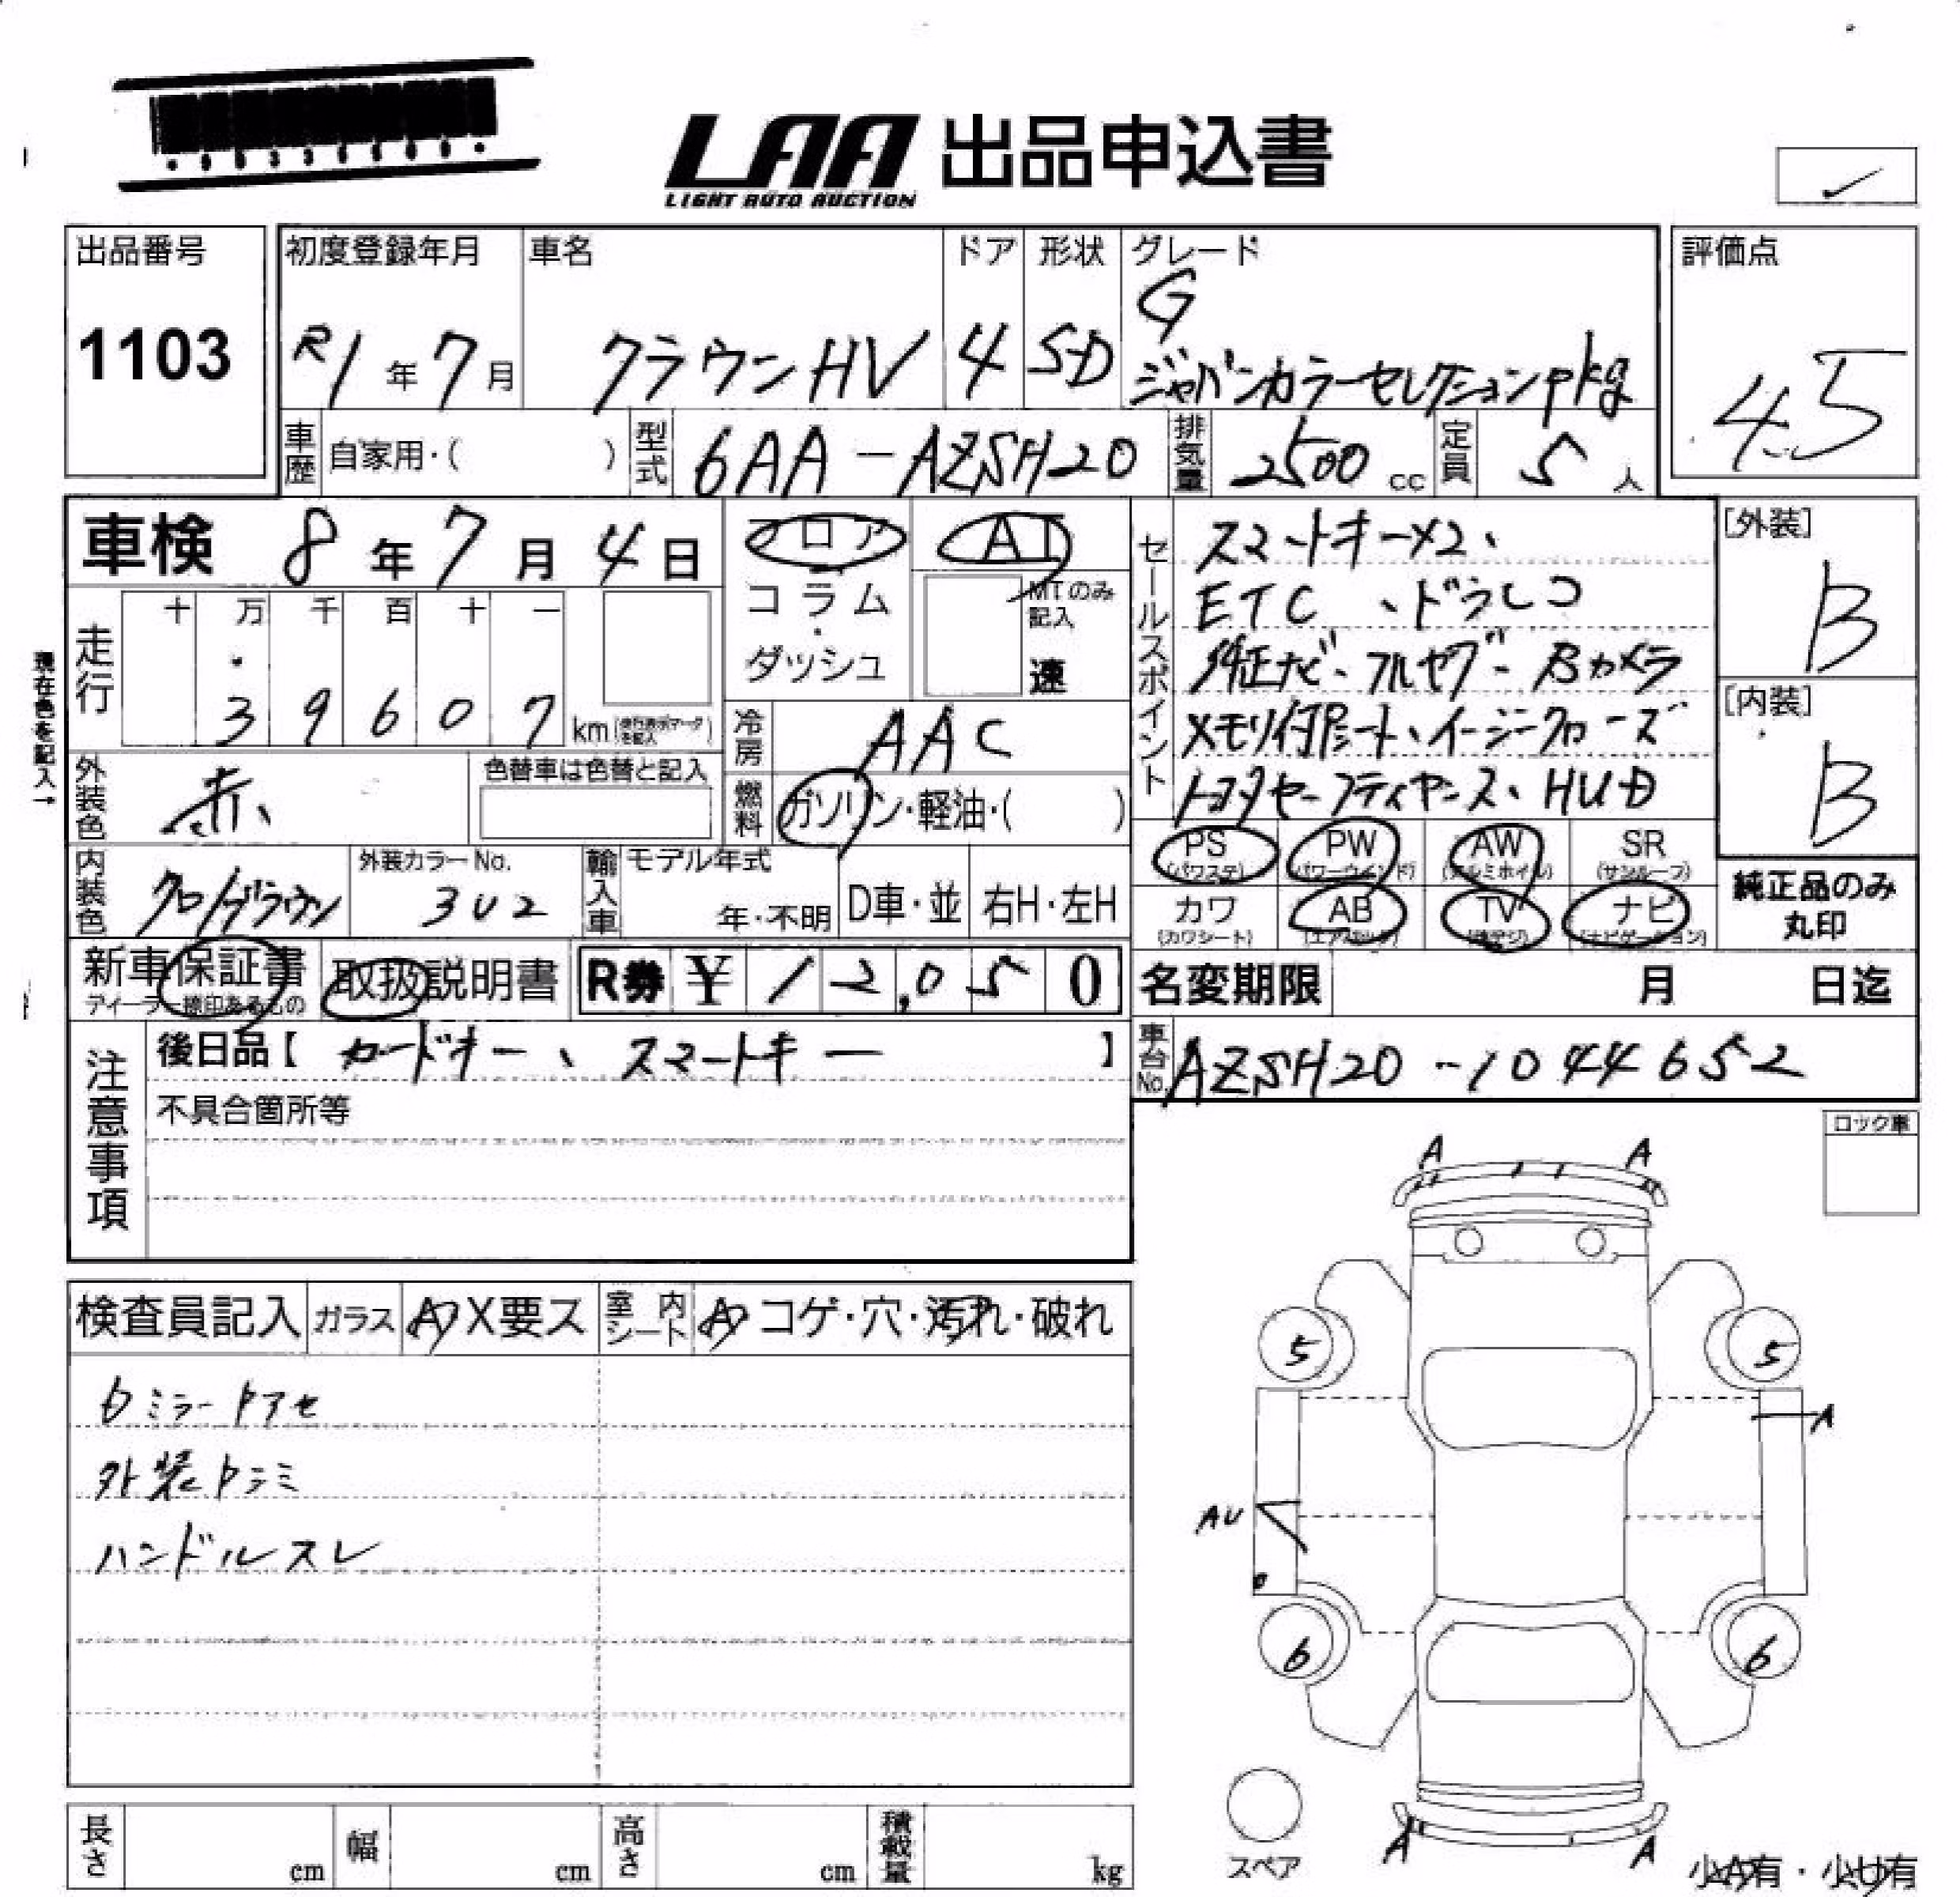 LAA 出品申込書
LIGHT AUTO AUCTION
出品番号
1103
初度登録年月
R1年7月
車名
クラウンHV
ドア
4
形状
SD
グレード
G
ジャパンカラーセレクションpkg
評価点
4.5
車歴 自家用・( )
型式 6AA-AZSH20
排気量 2500 cc
定員 5 人
車検 8年7月4日
フロア
コラム
・
ダッシュ
AT
MTのみ記入
速
走行
十 万 千 百 十 一
3 9 6 0 7 km
現在色を記入→
冷房 AAC
燃料 ガソリン・軽油・( )
外装色 赤
色替車は色替と記入
内装色 クロ/ブラウン
外装カラーNo.
3U2
輸入車 モデル年式
年・不明
D車・並
右H・左H
セールスポイント
スマートキー×2、
ETC、ドラレコ
純正ナビ-フルセグ-Bカメラ
メモリ付Pシート、イージークローズ
トヨタセーフティセンス、HUD
[外装]
B
[内装]
B
PS PW AW SR
(パワステ) (パワーウインド) (アルミホイル) (サンルーフ)
カワ AB TV ナビ
(カワシート) (エアバック) (地デジ) (ナビゲーション)
純正品のみ
丸印
新車保証書
ディーラー捺印あるもの
取扱説明書
R券 ¥ 12,050
名変期限 月 日迄
車台No. AZSH20-1044652
注意事項
後日品【カードキー、スマートキー】
不具合箇所等
ロック車
検査員記入 ガラス A X要ス 室内シート A コゲ・穴・汚れ・破れ
外装
ハンドルスレ
A A
5 5
A
AU
6 6
A A
スペア
少A有・少U有
長さ cm
幅 cm
高さ cm
積載量 kg